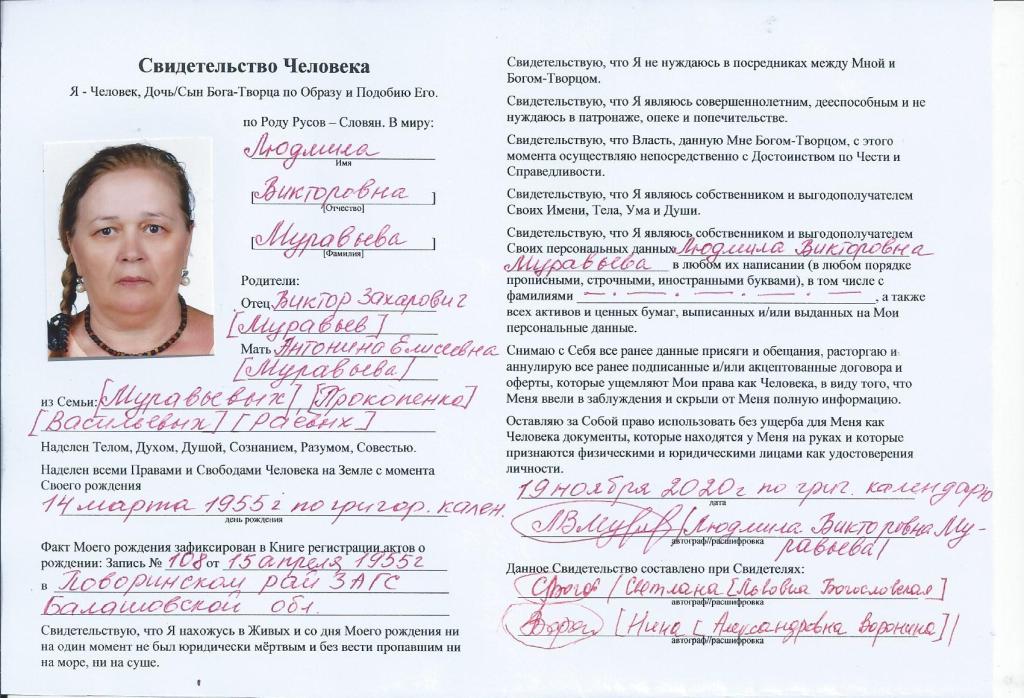 Свидетельство Человека
Я - Человек, Дочь/Сын Бога-Творца по Образу и Подобию Его.
по Роду Русов – Словян. В миру:
Людмила
Имя
[Викторовна]
[Отчество]
[Муравьева]
[Фамилия]
Родители:
Отец Виктор Захарович
[Муравьев]
Мать Антонина Елисеевна
[Муравьева]
из Семьи: [Муравьевых] [Прокопенко]
[Васильевых] [Раевых]
Наделен Телом, Духом, Душой, Сознанием, Разумом, Совестью.
Наделен всеми Правами и Свободами Человека на Земле с момента
Своего рождения
14 марта 1955г по григор. кален.
день рождения
Факт Моего рождения зафиксирован в Книге регистрации актов о
рождении: Запись № 108 от 15 апреля 1955г
в Поворинском рай ЗАГС
Балашовской обл.
Свидетельствую, что Я нахожусь в Живых и со дня Моего рождения ни
на один момент не был юридически мёртвым и без вести пропавшим ни
на море, ни на суше.
Свидетельствую, что Я не нуждаюсь в посредниках между Мной и
Богом-Творцом.
Свидетельствую, что Я являюсь совершеннолетним, дееспособным и не
нуждаюсь в патронаже, опеке и попечительстве.
Свидетельствую, что Власть, данную Мне Богом-Творцом, с этого
момента осуществляю непосредственно с Достоинством по Чести и
Справедливости.
Свидетельствую, что Я являюсь собственником и выгодополучателем
Своих Имени, Тела, Ума и Души.
Свидетельствую, что Я являюсь собственником и выгодополучателем
Своих персональных данных Людмила Викторовна
Муравьева в любом их написании (в любом порядке
прописными, строчными, иностранными буквами), в том числе с
фамилиями , а также
всех активов и ценных бумаг, выписанных и/или выданных на Мои
персональные данные.
Снимаю с Себя все ранее данные присяги и обещания, расторгаю и
аннулирую все ранее подписанные и/или акцептованные договора и
оферты, которые ущемляют Мои права как Человека, в виду того, что
Меня ввели в заблуждения и скрыли от Меня полную информацию.
Оставляю за Собой право использовать без ущерба для Меня как
Человека документы, которые находятся у Меня на руках и которые
признаются физическими и юридическими лицами как удостоверения
личности.
19 ноября 2020г по григ. календарю
дата
[Людмила Викторовна Му-
равьева]
автограф//расшифровка
Данное Свидетельство составлено при Свидетелях:
[Светлана [Львовна Богословская]
автограф//расшифровка
[Нина [Александровна Воронина]]
автограф//расшифровка